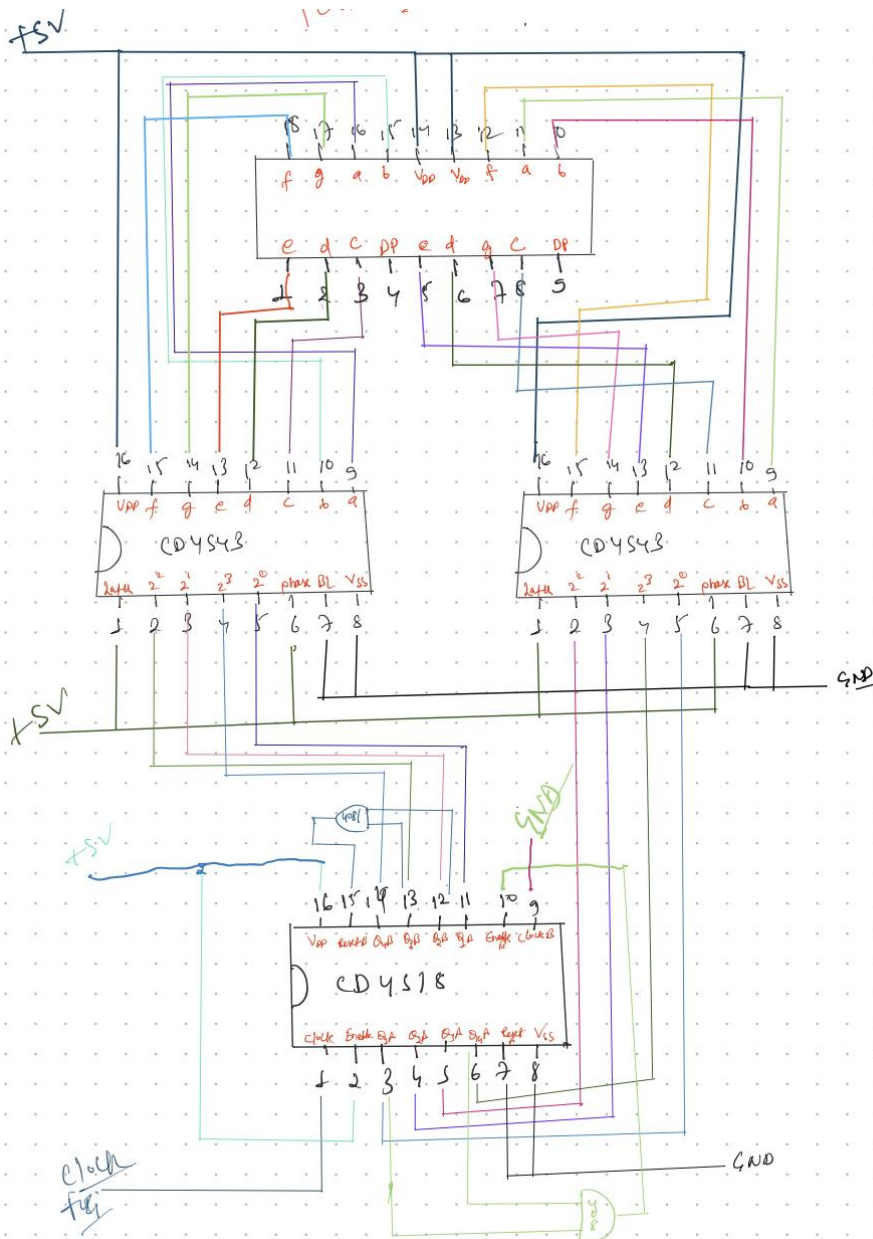 +5V
18 17 16 15 14 13 12 11 10
f g a b VDD VDD f a b
e d c DP e d g c DP
1 2 3 4 5 6 7 8 9
16 15 14 13 12 11 10 9
VDD f g e d c b a
CD4543
Latch 2² 2¹ 2³ 2⁰ phase BL VSS
1 2 3 4 5 6 7 8
16 15 14 13 12 11 10 9
VDD f g e d c b a
CD4543
Latch 2² 2¹ 2³ 2⁰ phase BL VSS
1 2 3 4 5 6 7 8
GND
+5V
4081
GND
+5V
16 15 14 13 12 11 10 9
VDD ResetB Q4B Q3B Q2B Q1B Enable B Clock B
CD4518
Clock Enable Q1A Q2A Q3A Q4A Reset A VSS
1 2 3 4 5 6 7 8
GND
Clock